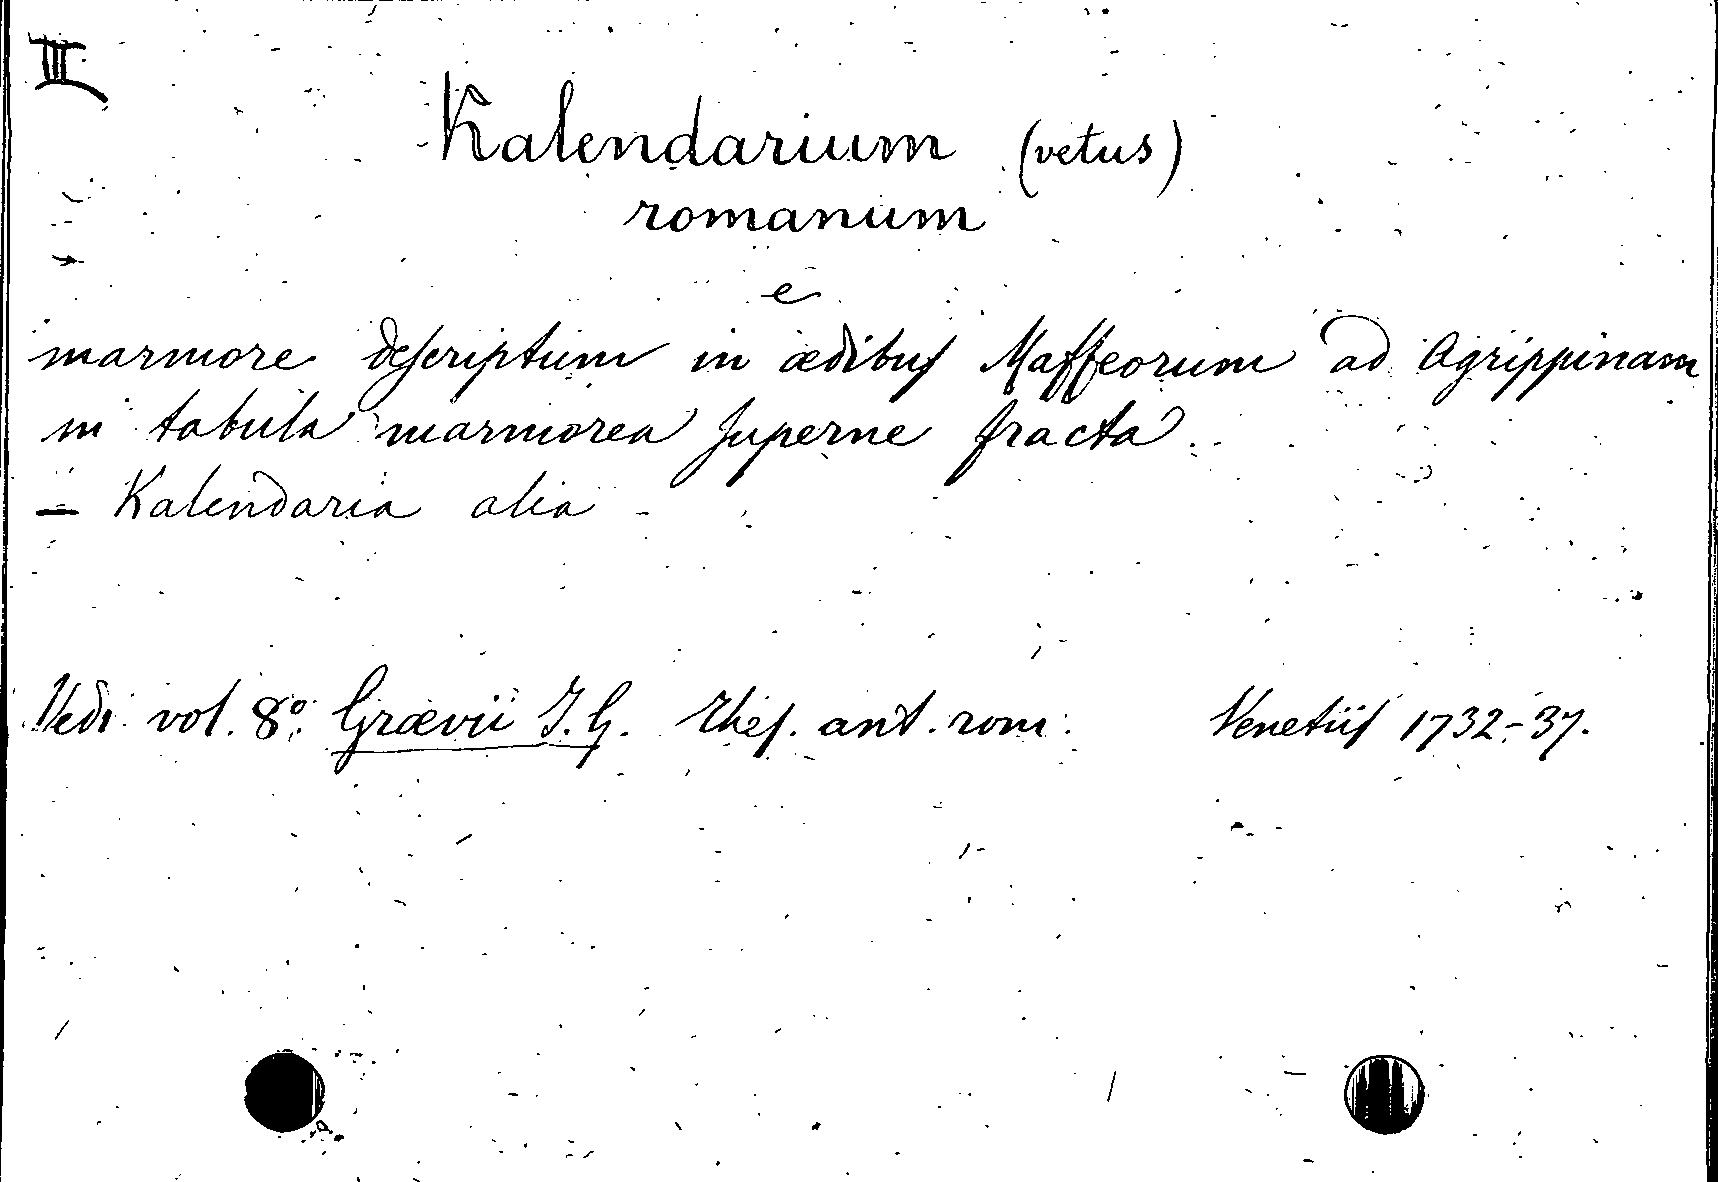 III
Kalendarium (vetus)
romanum
e
marmore deſcriptum in ædibuſ Maffeorum ad Agrippinam
in tabula marmorea ſuperne fracta.
— Kalendaria alia
Vedi vol. 8º: Grævii J. G. Theſ. ant. rom. Venetiiſ 1732-37.